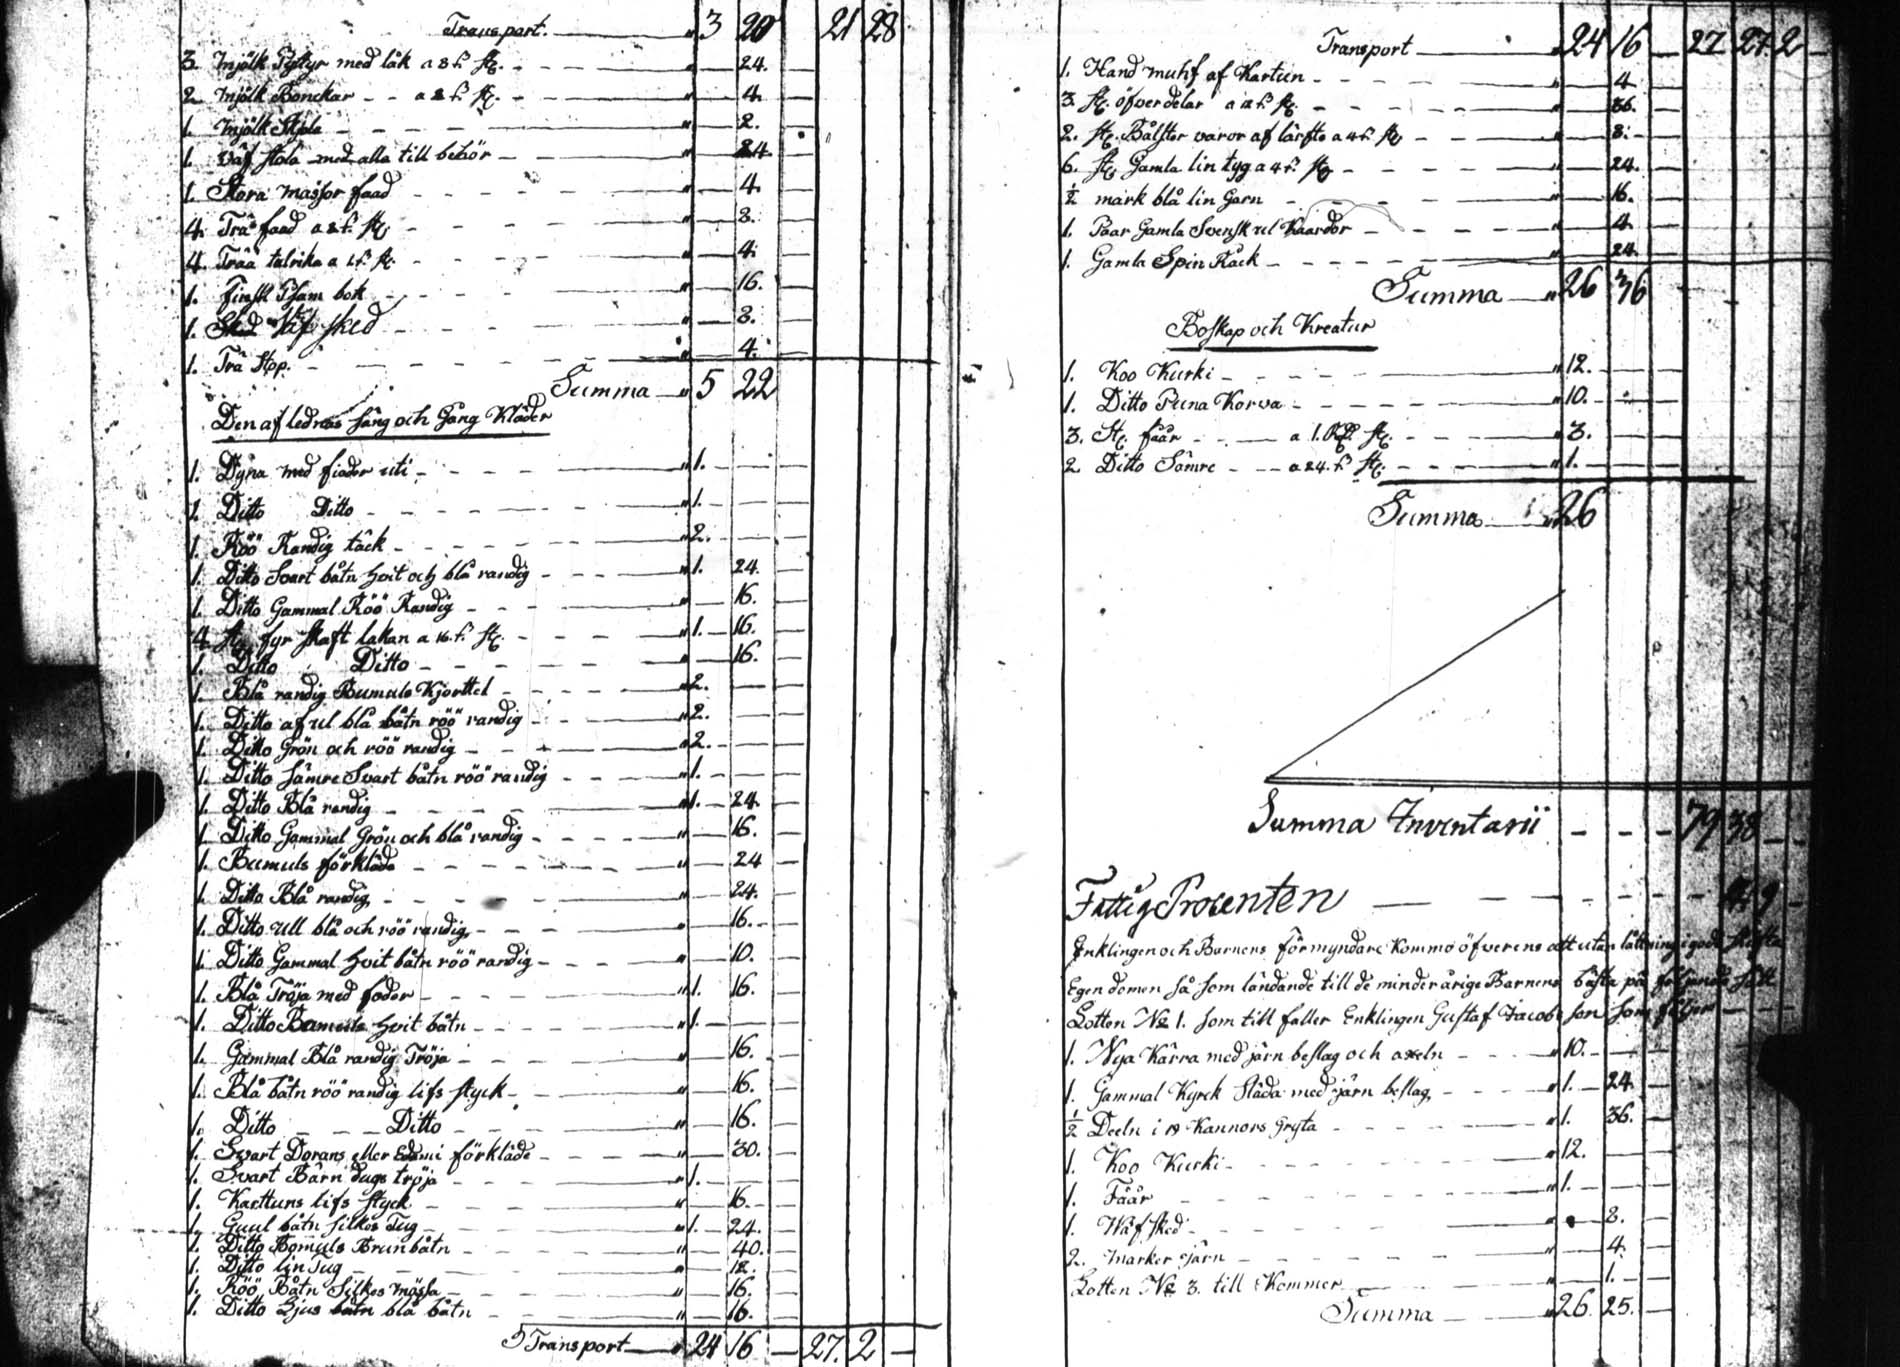 Transport. " 3 20 21 28
3. Mjölk Pyttyr med låk a 8 f. st. " 24.
2. Mjölk Bonckar a 2 f. st. " 4.
1. Mjölk Skjola " 2.
1. Väf stola med alla till behör " 24.
1. Stora Mässor faad " 4.
4. Trä faad a 2 f. st. " 8.
4. Trää talrika a 1 f. st. " 4.
1. Finsk Psam bok " 16.
1. Väf sked " 8.
1. Trä Stop. " 4.
Summa " 5 22
Den aflednas Säng och Gång Kläder
1. Dyna med fiader uti " 1.
1. Ditto Ditto " 1.
1. Röö Randig täck " 2.
1. Ditto Svart båtn hvit och blå randig " 1. 24.
1. Ditto Gammal Röö Randig " 16.
4. st. fyr skaft lakan a 16 f. st. " 1. 16.
1. Ditto Ditto " 16.
1. Blå randig Bumuls Kjorttel " 2.
1. Ditto af ul blå båtn röö randig " 2.
1. Ditto Grön och röö randig " 2.
1. Ditto sämre Svart båtn röö randig " 1.
1. Ditto Blå randig " 1. 24.
1. Ditto Gammal Grön och blå randig " 16.
1. Bumuls förkläde " 24
1. Ditto Blå randig " 24.
1. Ditto Ull blå och röö randig " 16.
1. Ditto Gammal hvit båtn röö randig " 10.
1. Blå Tröja med foder " 1. 16.
1. Ditto Bamuls hvit båtn " 1.
1. Gammal Blå randig Tröja " 16.
1. Blå båtn röö randig lifs styck " 16.
1. Ditto Ditto " 16.
1. Svart Dorans eller förkläde " 30.
1. Svart Barn dugs tröja " 1.
1. Karttuns lifs styck " 16.
1. Guul båtn silkes Tug " 1. 24.
1. Ditto Bomuls Brun båtn " 40.
1. Ditto lin Tug " 12.
1. Röö Båtn Silkes mössa " 16.
1. Ditto Ljus båtn blå båtn " 16.
Transport " 24 16 27. 2
Transport " 24 16 27 27. 2
1. Hand muhf af Kartun " 4
3. st. öfverdelar a 12 f. st. " 36.
2. st. Bålster varor af lärfts a 4 f. st. " 8.
6. st. Gamla lin tyg a 4 f. st. " 24.
½ mark blå lin Garn " 16.
1. Paar Gamla Svensk ul Kaardor " 4
1. Gamla Spin Råck " 24
Summa " 26 36
Boskap och Kreatur
1. Koo Kurki " 12.
1. Ditto Puna Korva " 10.
3. St. fåår a 1. Rd. st. " 3.
2. Ditto Sämre a 24. f. st. " 1.
Summa " 26
Summa Inventarii 79 38
Fattig Procenten 9
Enklingen och Barnens förmyndare kommo öfverens att utan låttning i godo skifta
Egendomen så som ländande till de minder årige Barnens bästa på följande sätt
Lotten No 1. som till faller Enklingen Gustaf Jacobs son som följer
1. Nya Kärra med järn beslag och axeln " 10.
1. Gammal Kyrck Släda med järn beslag " 1. 24.
½ Deeln i 19 Kannors Gryta " 1. 36.
1. Koo Kurki " 12.
1. Fåår " 1.
1. Wäf sked " 8.
2. Marker Järn " 4.
Lotten No 3. till Kommer " 1.
Summa " 26. 25.